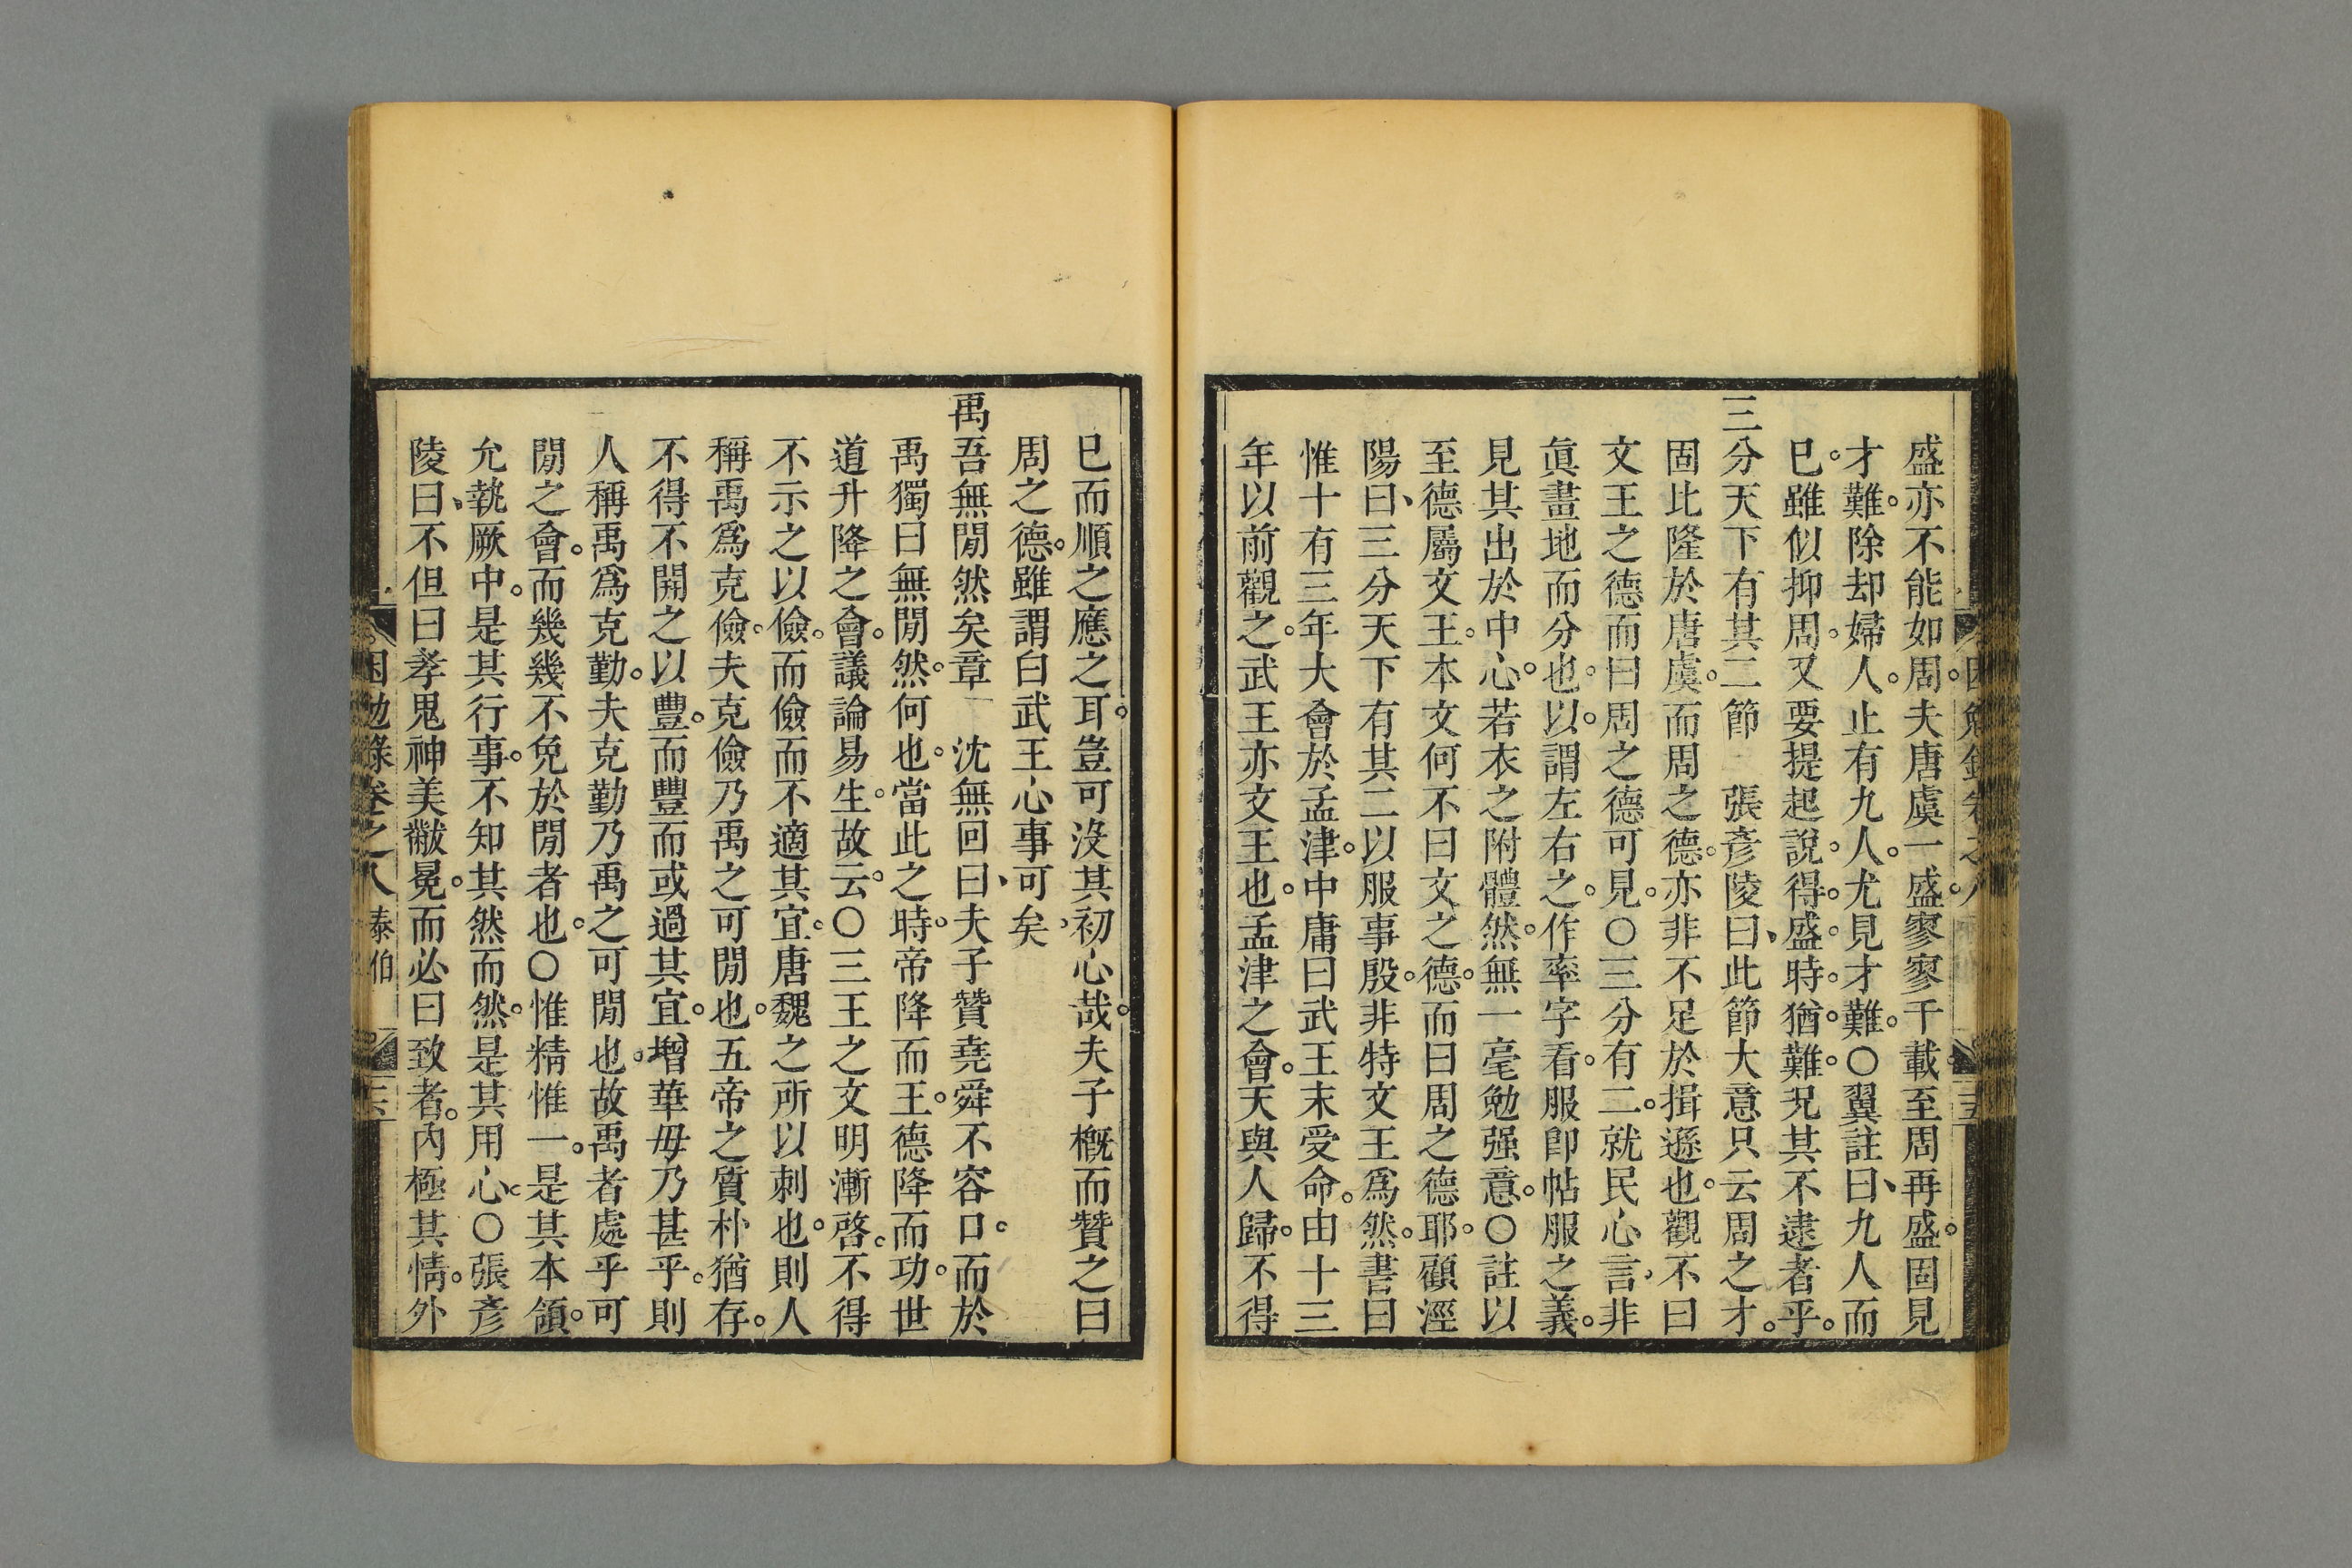 盛亦不能如周。夫唐虞一盛。寥寥千載至周再盛。固見
才難。除却婦人。止有九人。尤見才難。○翼註曰、九人而
已。雖似抑周。又要提起說。得盛。時。猶。難。況其不逮者乎。
三分天下有其二節　張彥陵曰、此節大意只云周之才。
固比隆於唐虞。而周之德。亦非不足於揖遜也。觀不曰
文王之德而曰周之德可見。○三分有二。就民心言、非
眞畫地而分也。以。謂左右之。作率字看。服卽帖服之義。
見其出於中心。若衣之附體然。無一毫勉强意。○註以
至德屬文王。本文何不曰文之德。而曰周之德耶。顧涇
陽曰、三分天下有其二以服事殷。非特文王爲然。書曰
惟十有三年大會於孟津。中庸曰武王末受命。由十三
年以前觀之。武王亦文王也。孟津之會。天與人歸。不得
已而順之應之耳。豈可沒其初心哉。夫子槪而贊之曰
周之德。雖謂白武王心事可矣、
禹吾無閒然矣章　沈無回曰、夫子贊堯舜不容口。而於
禹獨曰無閒然。何也。當此之時。帝降而王。德降而功。世
道升降之會。議論易生。故云。○三王之文明漸啓。不得
不示之以儉。而儉而不適其宜。唐魏之所以刺也。則人
稱禹爲克儉。夫克儉乃禹之可閒也。五帝之質朴猶存。
不得不開之以豐。而豐而或過其宜。增華毋乃甚乎。則
人稱禹爲克勤。夫克勤乃禹之可閒也。故禹者處乎可
閒之會。而幾幾不免於閒者也。○惟精惟一。是其本領。
允執厥中。是其行事。不知其然而然。是其用心。○張彥
陵曰、不但曰孝鬼神美黻冕。而必曰致者。內極其情。外
困勉錄卷之八　泰伯